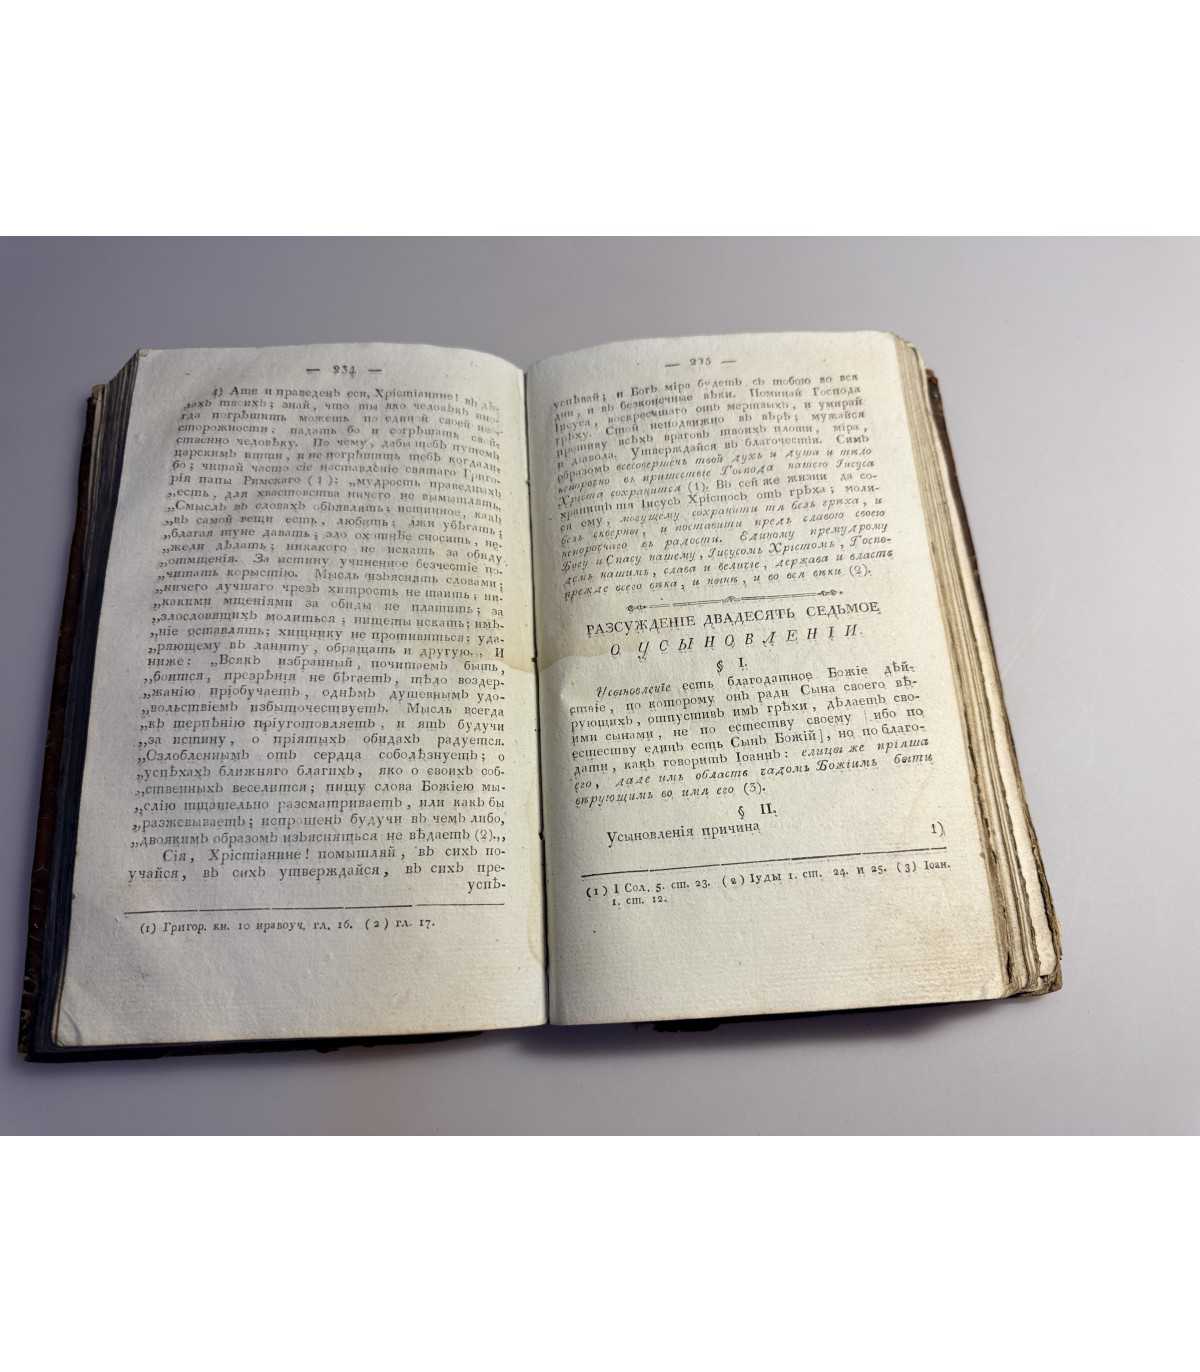 — 234 —
4) Аще и праведенъ еси, Хрістіанине! въ дѣ-
лахъ твоихъ; знай, что ты яко человѣкъ ино-
гда погрѣшить можешь по единой своей нео-
сторожности: падать бо и согрѣшать свой-
ственно человѣку. По чему, дабы тебѣ путемъ
царскимъ итти, и не погрѣшить тебѣ когдали-
бо; читай часто сіе наставленіе святаго Григо-
рія папы Римскаго (1): „мудрость праведныхъ
„есть, для хвастовства ничего не вымышлять.
„Смыслъ въ словахъ объявлять; истинное, какъ
„въ самой вещи есть, любить; лжи убѣгать;
„благая туне давать; зло охотнѣе сносить, не-
„жели дѣлать; никакого не искать за обиду
„отмщенія. За истину учиненное безчестіе по-
„читать корыстію. Мысль изъяснять словами;
„ничего лучшаго чрезъ хитрость не таить; ни-
„какими мщеніями за обиды не платить; за
„злословящихъ молиться; нищеты искать; имѣ-
„ніе оставлять; хищнику не противиться; уда-
„ряющему въ ланиту, обращать и другую.„ И
ниже: „Всякъ избранный, почитаемъ быть,
„боится, презрѣнія не бѣгаетъ, тѣло воздер-
„жанію пріобучаетъ, однѣмъ душевнымъ удо-
„вольствіемъ избыточествуетъ. Мысль всегда
„къ терпѣнію пріуготовляетъ, и ятъ будучи
„за истину, о пріятыхъ обидахъ радуется.
„Озлобленнымъ отъ сердца соболѣзнуетъ; о
„успѣхахъ ближняго благихъ, яко о своихъ соб-
„ственныхъ веселится; пищу слова Божіею мы-
„слію тщательно разсматриваетъ, или какъ бы
„разжевываетъ; испрошенъ будучи въ чемъ либо,
„двоякимъ образомъ изъясняться не вѣдаетъ (2).„
Сія, Хрістіанине! помышляй, въ сихъ по-
учайся, въ сихъ утверждайся, въ сихъ пре-
успѣ-
(1) Григор. кн. 10 нравоуч. гл. 16. (2) гл. 17.
— 235 —
успѣвай; и Богъ міра будетъ съ тобою во вся
дни, и въ безконечные вѣки. Поминай Господа
Іисуса, воскресшаго отъ мертвыхъ, и умирай
грѣху. Стой неподвижно въ вѣрѣ; мужайся
противу всѣхъ враговъ твоихъ плоти, міра,
и діавола. Утверждайся въ благочестіи. Симъ
образомъ всесовершенъ твой духъ и душа и тѣло
непорочно въ пришествіе Господа нашего Іисуса
Христа сохранится (1). Въ сей же жизни да со-
хранитъ тя Іисусъ Хрістосъ отъ грѣха; моли-
ся ему, могущему сохранити тя безъ грѣха, и
безъ скверны, и поставити предъ славою своею
непорочнаго въ радости. Единому премудрому
Богу и Спасу нашему, Іисусомъ Хрістомъ, Госпо-
демъ нашимъ, слава и величіе, держава и власть
прежде всего вѣка, и нынѣ, и во вся вѣки (2).
РАЗСУЖДЕНІЕ ДВАДЕСЯТЬ СЕДЬМОЕ
О УСЫНОВЛЕНІИ.
§ I.
Усыновленіе есть благодатное Божіе дѣй-
ствіе, по которому онъ ради Сына своего вѣ-
рующихъ, отпустивъ имъ грѣхи, дѣлаетъ сво-
ими сынами, не по естеству своему [ибо по
естеству единъ есть Сынъ Божій], но по благо-
дати, какъ говоритъ Іоаннъ: елицы же пріяша
его, даде имъ область чадомъ Божіимъ быти
вѣрующимъ во имя его (3).
§ II.
Усыновленія причина
1)
(1) I Сол. 5. ст. 23. (2) Іуды 1. ст. 24. и 25. (3) Іоан.
1. ст. 12.